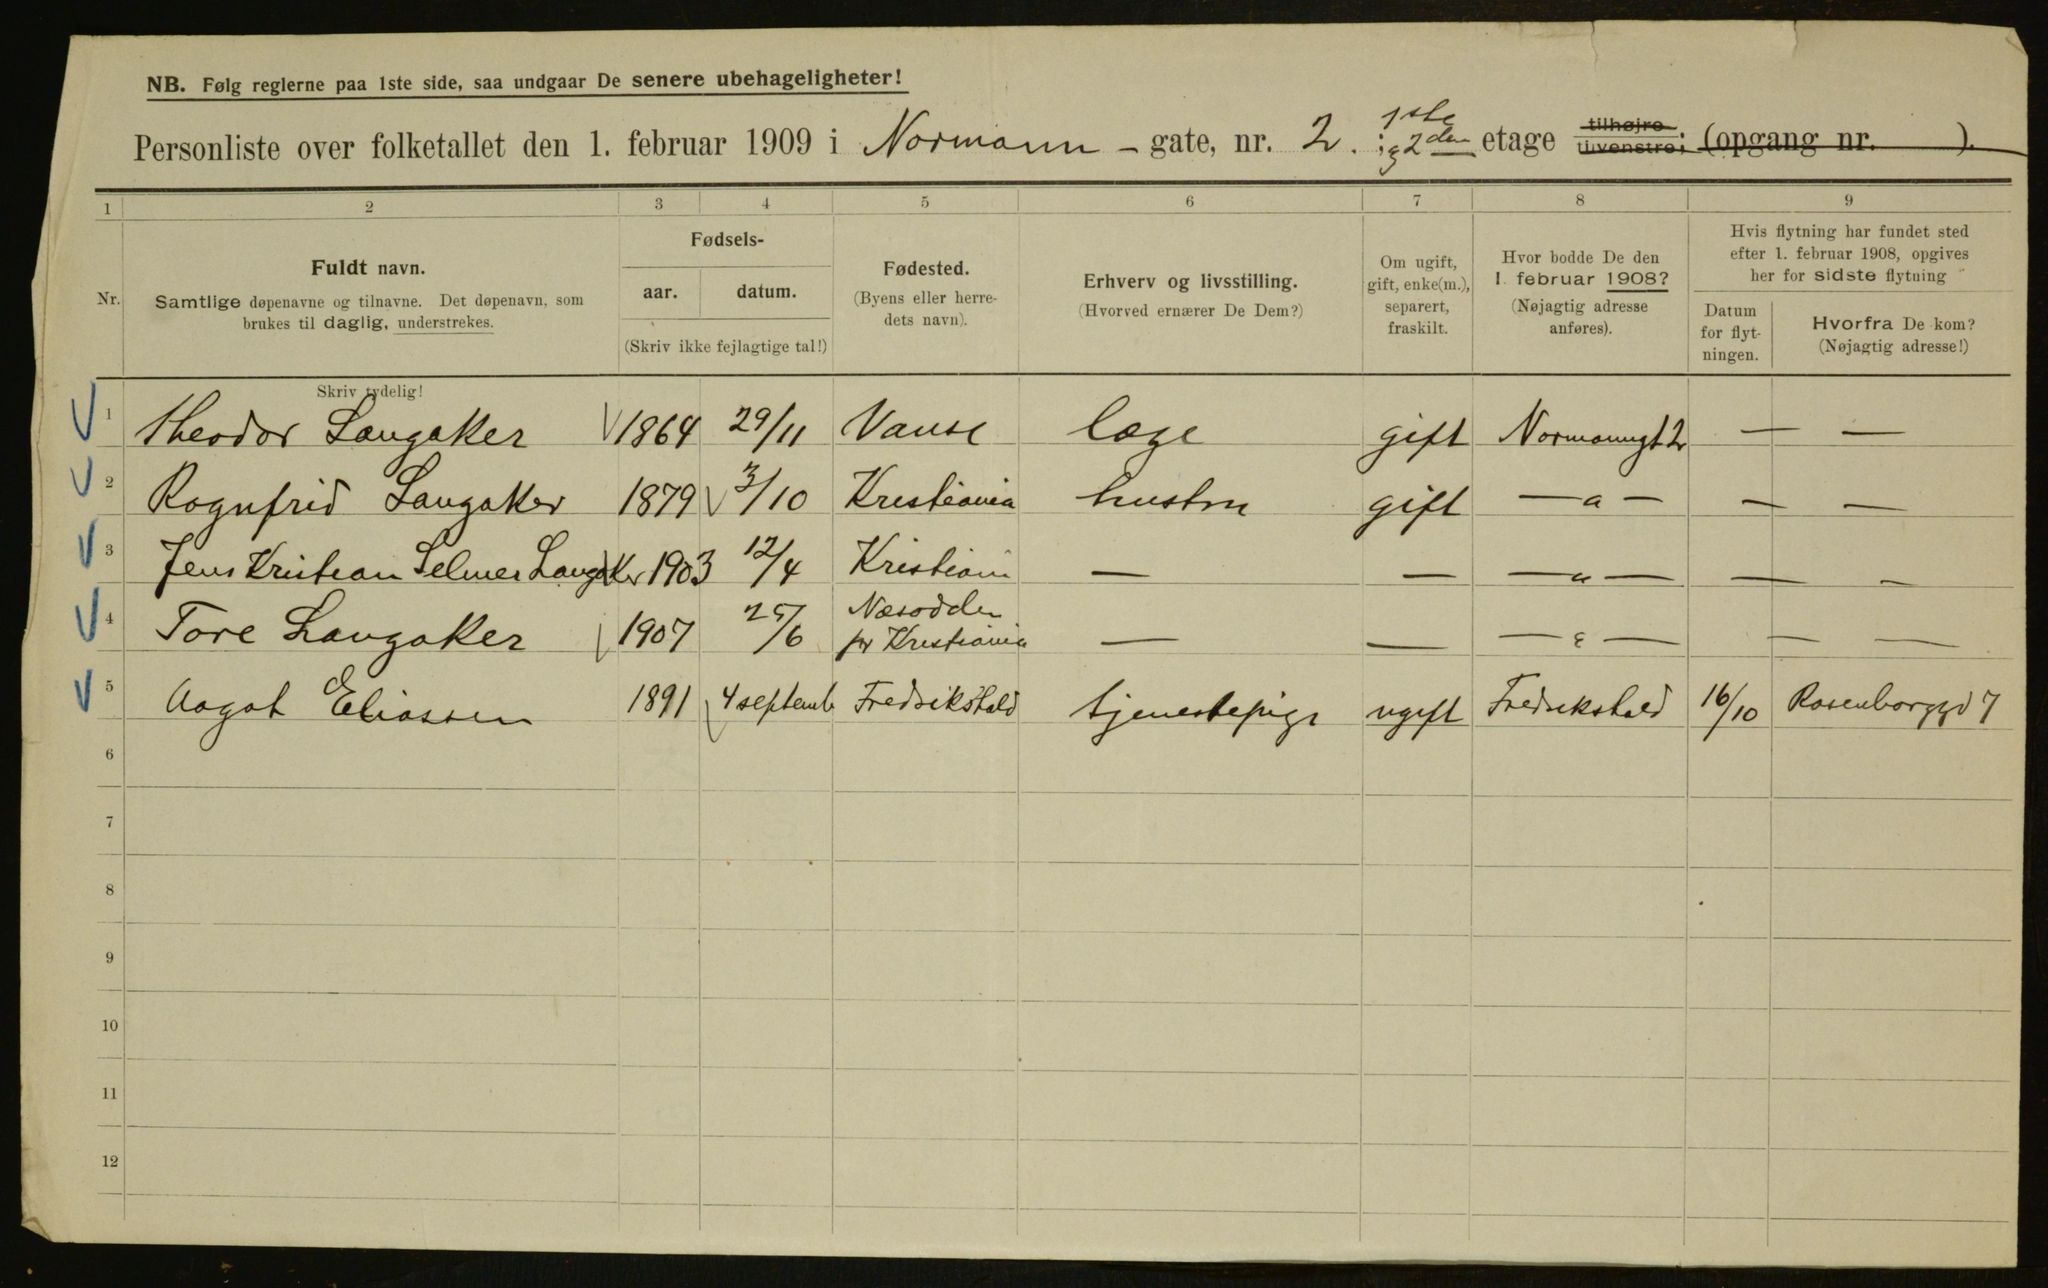 NB. Følg reglerne paa 1ste side, saa undgaar De senere ubehageligheter!
Personliste over folketallet den 1. februar 1909 i Normann - gate, nr. 2. ; 1ste & 2den etage tilhøjre tilvenstre; (opgang nr. ).
1 2 3 4 5 6 7 8 9
Nr.
Fuldt navn.
Samtlige døpenavne og tilnavne. Det døpenavn, som
brukes til daglig, understrekes.
Fødsels-
aar. datum.
(Skriv ikke fejlagtige tal!)
Fødested.
(Byens eller herre-
dets navn).
Erhverv og livsstilling.
(Hvorved ernærer De Dem?)
Om ugift,
gift, enke(m.),
separert,
fraskilt.
Hvor bodde De den
1. februar 1908?
(Nøjagtig adresse
anføres).
Hvis flytning har fundet sted
efter 1. februar 1908, opgives
her for sidste flytning
Datum
for flyt-
ningen.
Hvorfra De kom?
(Nøjagtig adresse!)
Skriv tydelig!
1 Theodor Langaker 1864 29/11 Vanse læge gift Normannsgt 2 — —
2 Ragnfrid Langaker 1879 3/10 Kristiania hustru gift — " — — —
3 Jens Kristian Selmer Langaker 1903 12/4 Kristiania — — — " — — —
4 Tore Langaker 1907 25/6 Næsodden
pr Kristiania — — — " — — —
5 Aagot Eliassen 1891 4 septemb Fredrikshald tjenestepige ugift Fredrikshald 16/10 Rosenborggd 7
6
7
8
9
10
11
12